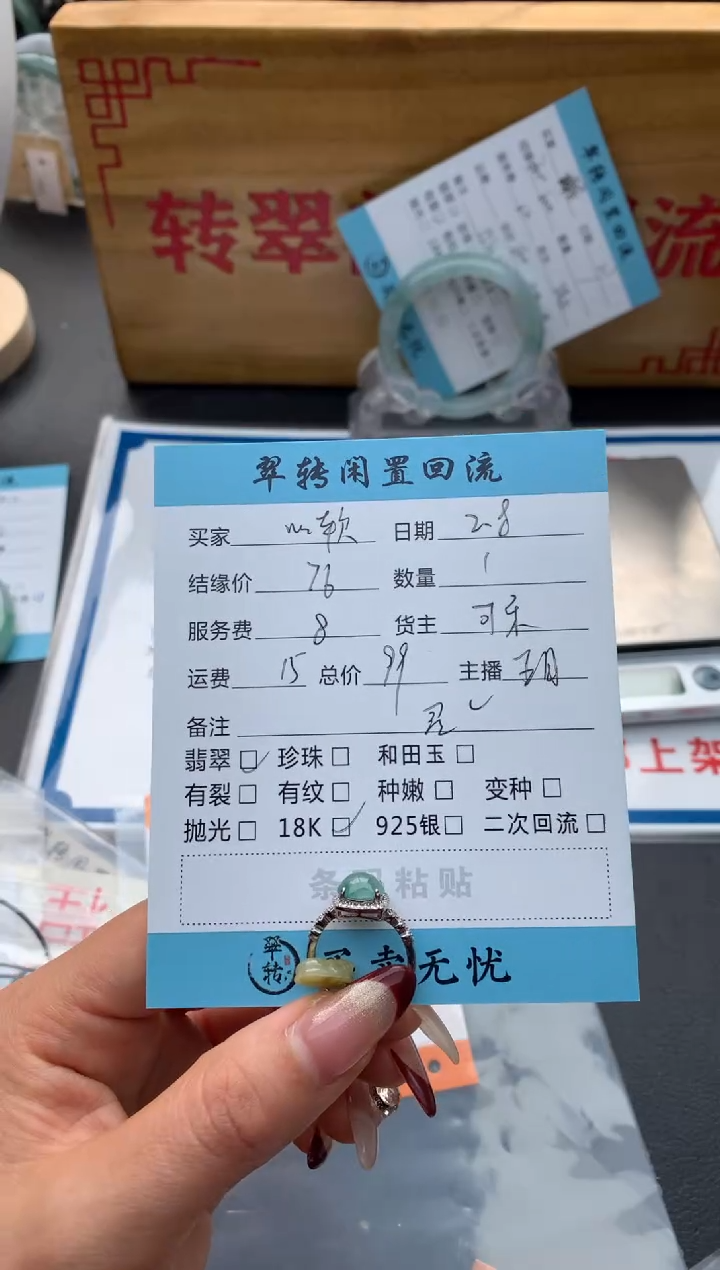 转翠
流
翠转闲置回流
买家 软 日期 2.8
结缘价 76 数量 1
服务费 8 货主 可乐
运费 15 总价 99 主播
备注
翡翠☑ 珍珠□ 和田玉□
有裂□ 有纹□ 种嫩□ 变种□
抛光□ 18K☑ 925银□ 二次回流□
条 粘贴
翠转 买卖无忧
上架